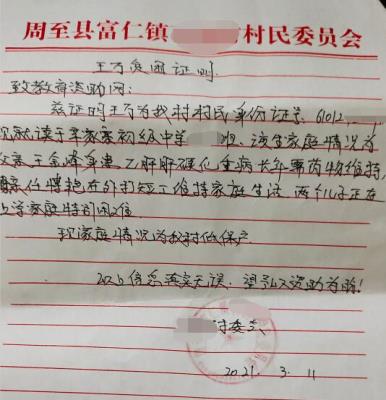 周至县富仁镇 村民委员会
贫困证明
致教育资助网:
兹证明王 为我村村民,身份证号:61012
现就读于 初级中学 班。该生家庭情况为
父亲王 身患乙肝肝硬化重病长年需药物维持,
在外打短工维持家庭生活,两个儿子正在
上学家庭特别困难
现家庭情况为我村低保户
以上信息真实无误,望 资助为盼!
村委会
2021. 3. 11